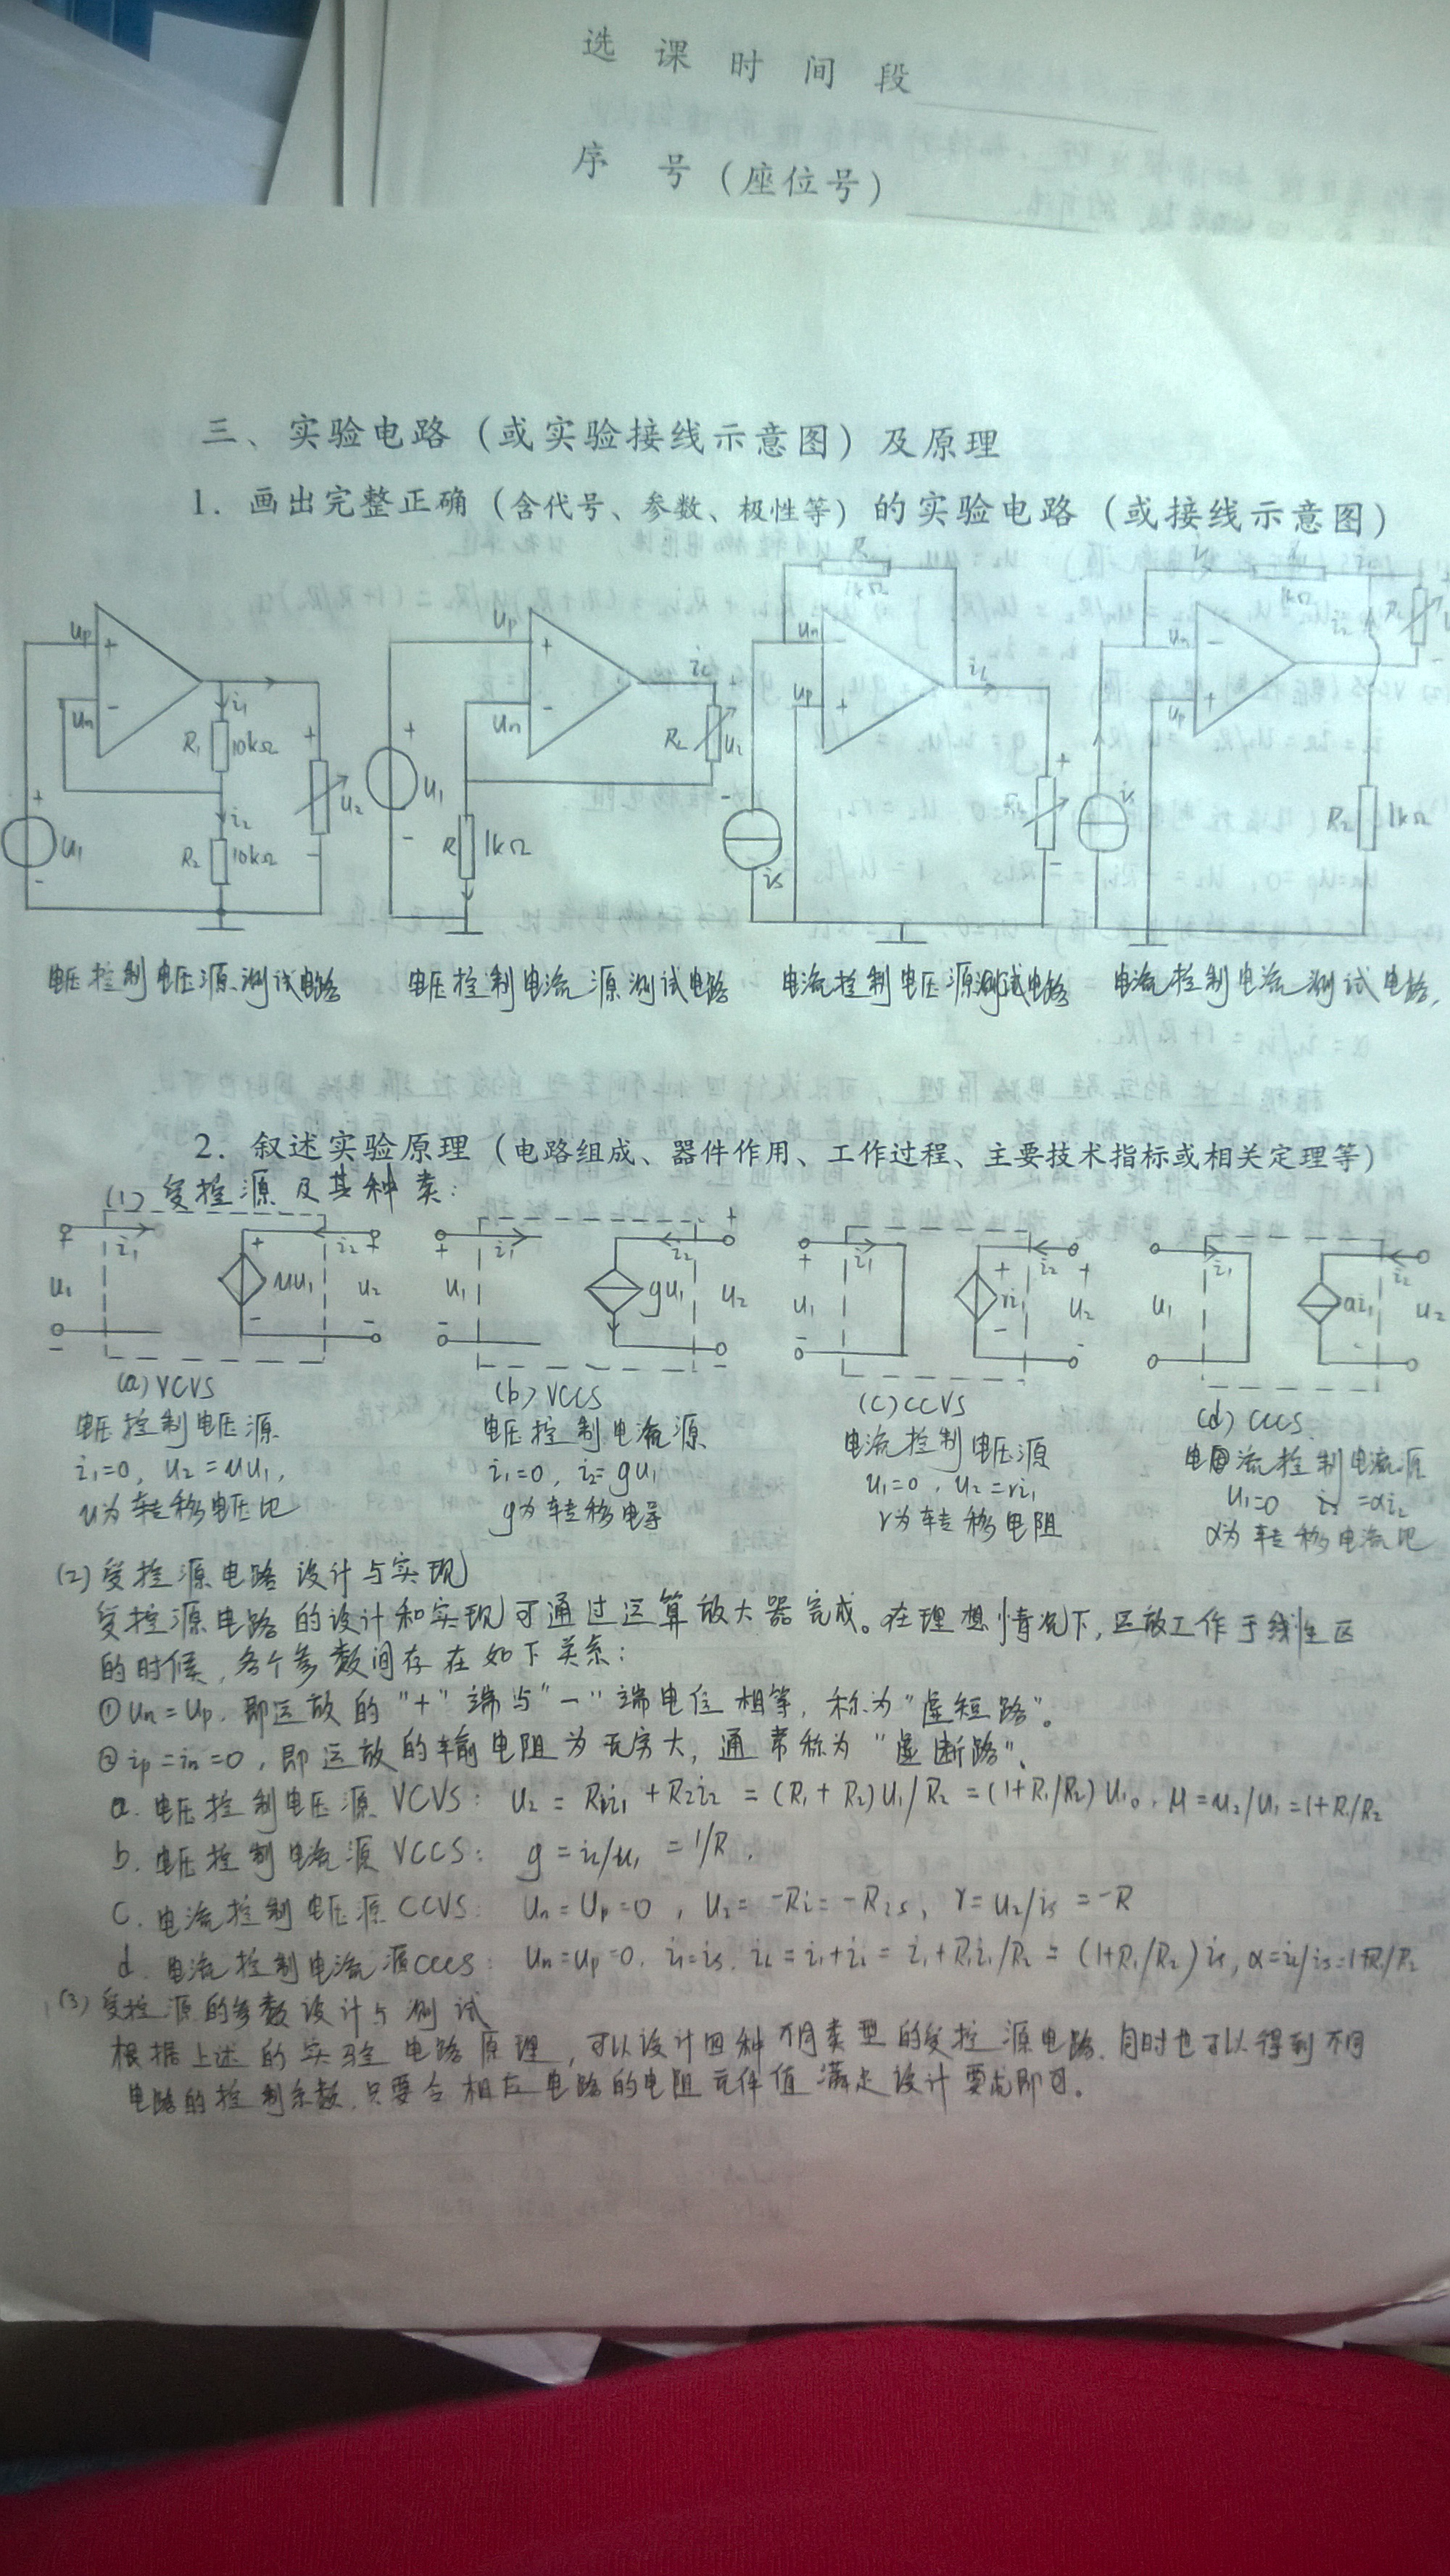 选课时间段
序号(座位号)
三、实验电路(或实验接线示意图)及原理
1. 画出完整正确(含代号、参数、极性等)的实验电路(或接线示意图)
up + un - i1 R1 10kΩ i2 R2 10kΩ + u2 - + u1 -
up + un - iL RL u2 + u1 - R 1kΩ
R 1kΩ un - up + iL + RL - - is
1kΩ un - up + i2 RL - is R2 1kΩ
电压控制电压源测试电路 电压控制电流源测试电路 电流控制电压源测试电路 电流控制电流测试电路.
2. 叙述实验原理(电路组成、器件作用、工作过程、主要技术指标或相关定理等)
(1) 受控源及其种类:
+ i1 u1 - + μu1 - i2 + u2 -
+ i1 u1 - gu1 i2 + u2 -
+ i1 u1 - + ri1 - i2 + u2 -
i1 u1 αi1 i2 u2
(a) VCVS (b) VCCS (c) CCVS (d) CCCS.
电压控制电压源 电压控制电流源 电流控制电压源 电流控制电流源
i1=0, u2=μu1, i1=0, i2=gu1 u1=0, u2=ri1 u1=0 i2=αi2
u为转移电压比 g为转移电导 r为转移电阻 α为转移电流比
(2) 受控源电路设计与实现
受控源电路的设计和实现可通过运算放大器完成。在理想情况下, 运放工作于线性区
的时候, 各个参数间存在如下关系:
①un=up, 即运放的"+"端与"-"端电位相等, 称为"虚短路"。
②ip=in=0, 即运放的输电阻为无穷大, 通常称为"虚断路".
a. 电压控制电压源 VCVS: u2 = R1i1 + R2i2 = (R1+R2)u1/R2 = (1+R1/R2)u1。, μ=u2/u1=1+R1/R2
b. 电压控制电流源 VCCS: g = iL/u1 = 1/R.
c. 电流控制电压源 CCVS: un=up=0, u2=-Ri=-Ris, r=u2/is=-R
d. 电流控制电流源 CCCS: un=up=0. i1=is. iL=i1+i2=i1+R1i1/R2=(1+R1/R2)is, α=iL/is=1+R1/R2
(3) 受控源的参数设计与测试
根据上述的实验电路原理, 可以设计四种不同类型的受控源电路. 同时也可以得到不同
电路的控制系数, 只要令相应电路的电阻元件值满足设计要求即可。